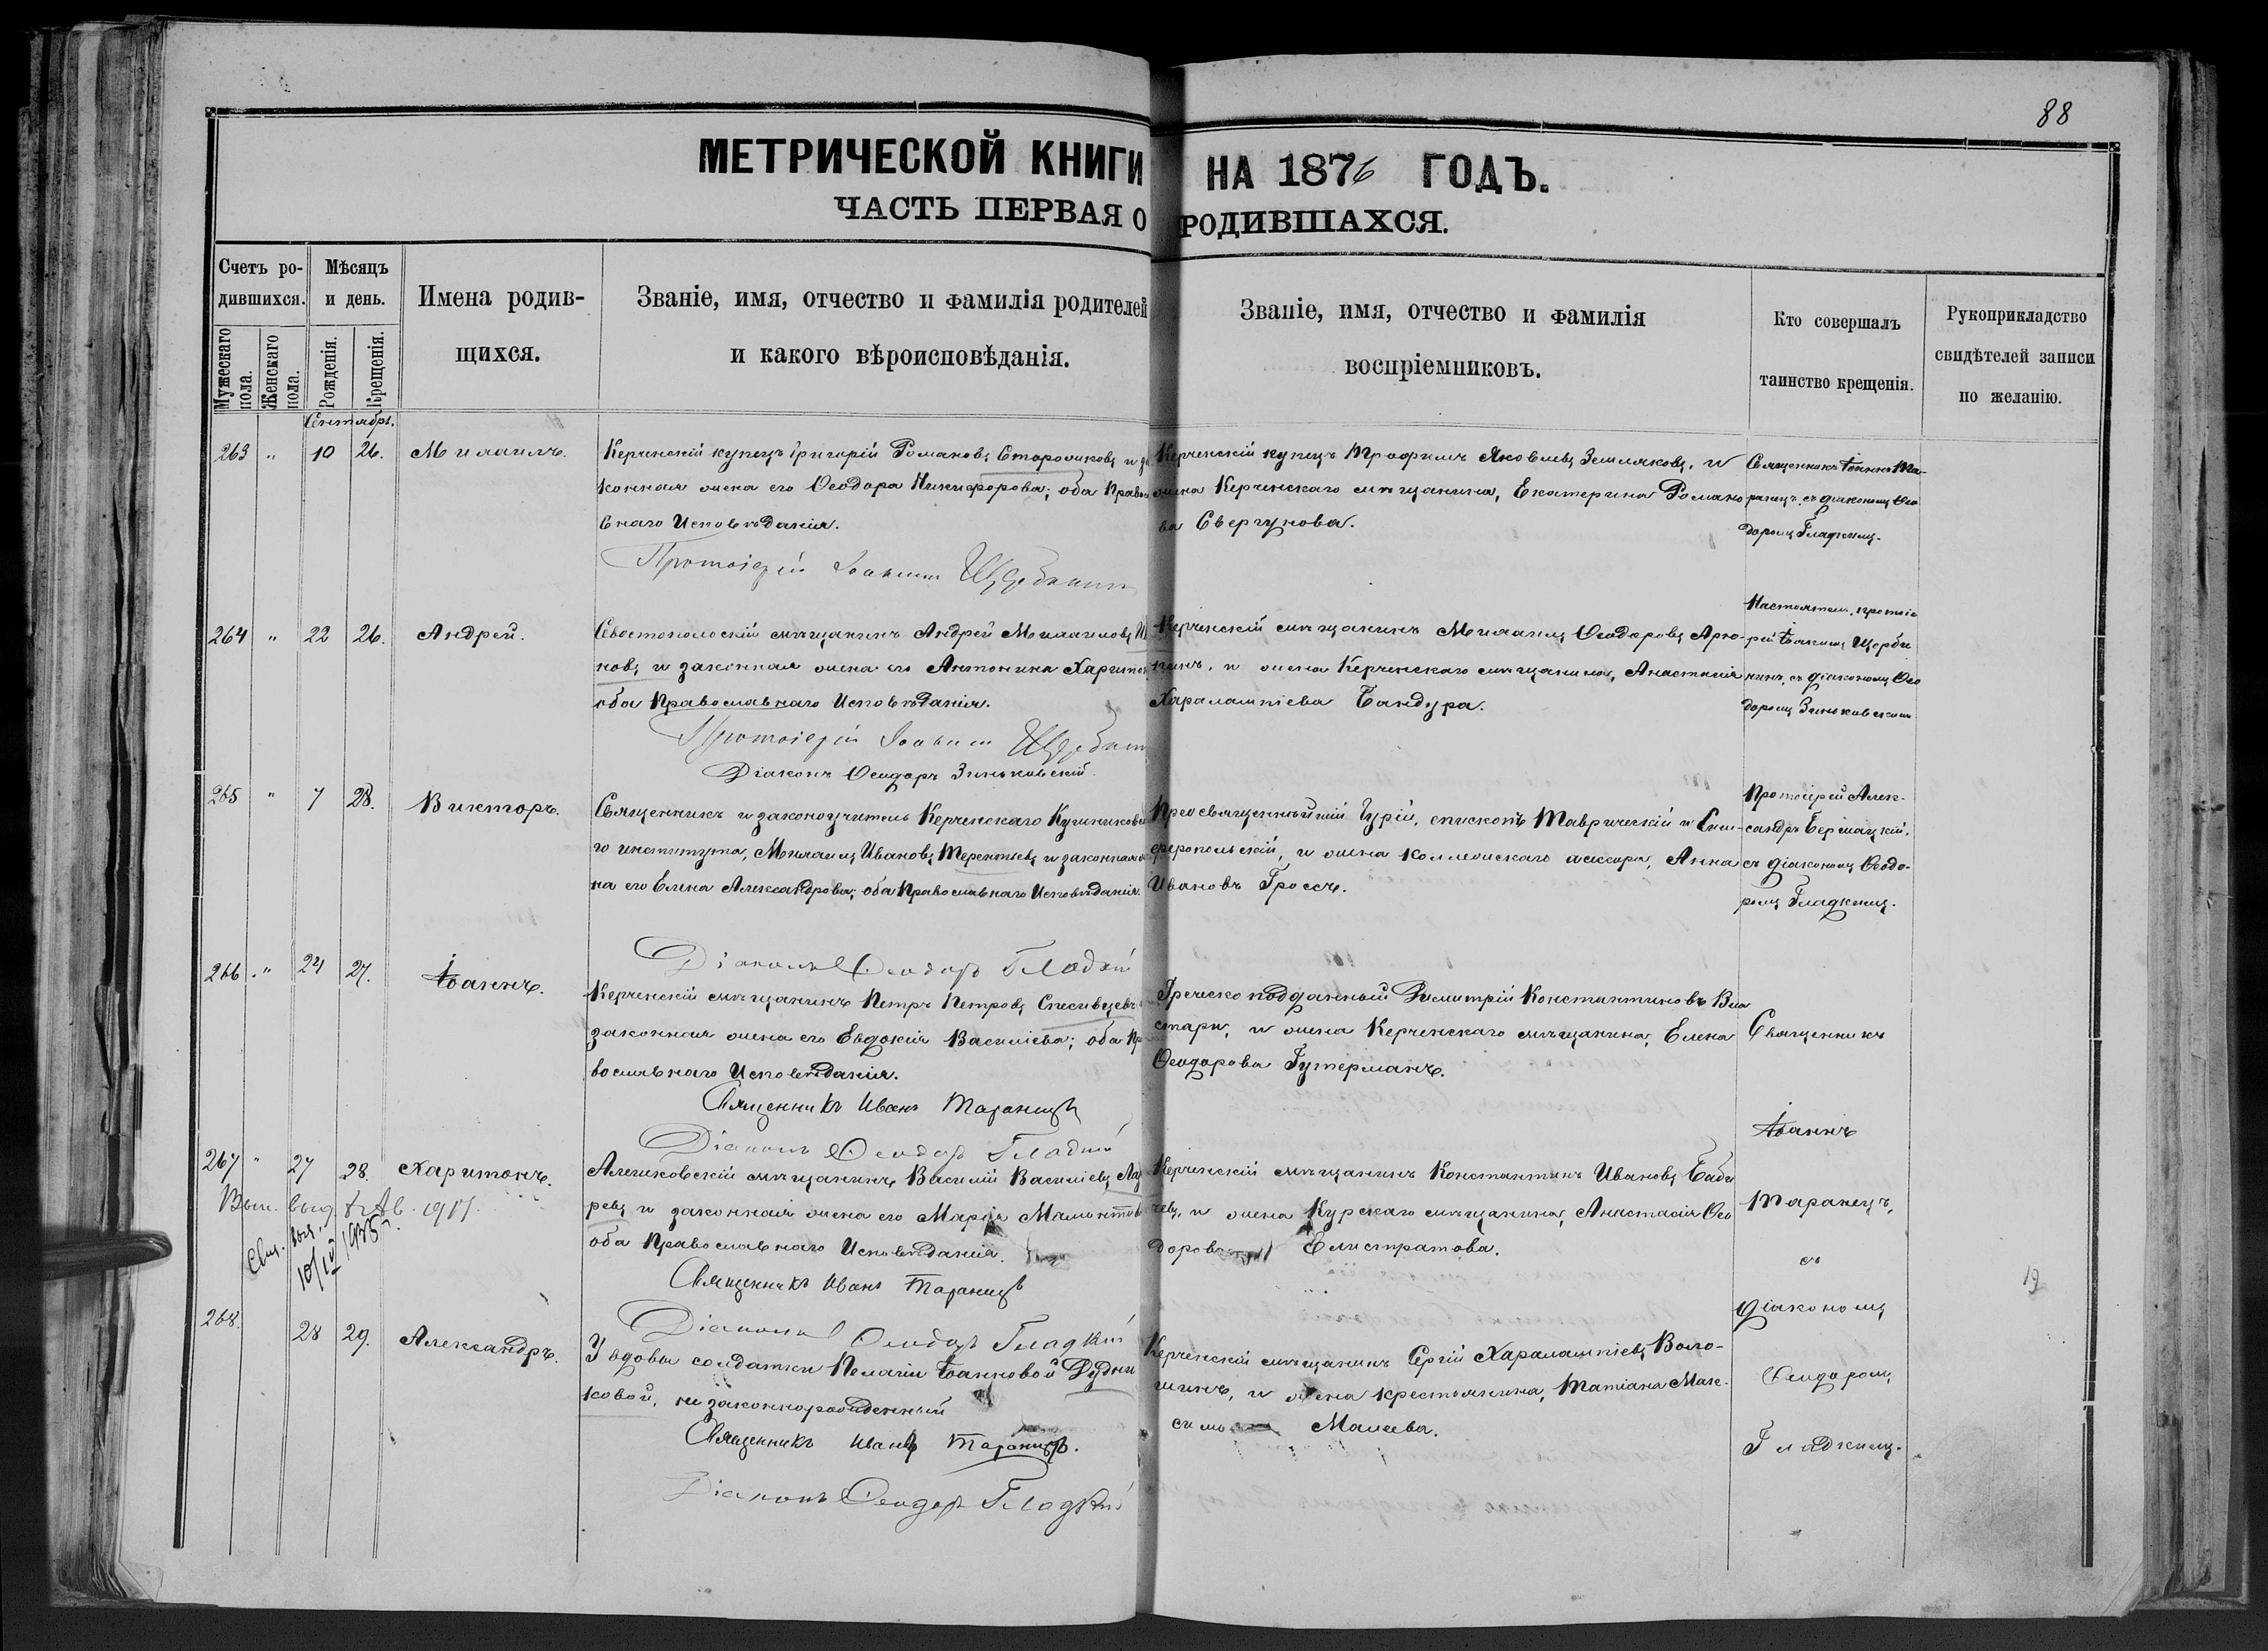 88
МЕТРИЧЕСКОЙ КНИГИ НА 1876 ГОДЪ.
ЧАСТЬ ПЕРВАЯ О РОДИВШАХСЯ.
Счетъ ро-
дившихся.
Мужескаго
пола.
Женскаго
пола.
Мѣсяцъ
и день.
Рожденія.
Крещенія.
Имена родив-
щихся.
Званіе, имя, отчество и фамилія родителей
и какого вѣроисповѣданія.
Званіе, имя, отчество и фамилія
воспріемниковъ.
Кто совершалъ
таинство крещенія.
Рукоприкладство
свидѣтелей записи
по желанію.
Сентябрь.
263 " 10 26. Михаилъ.
Керченскій купецъ Григорій Романовъ Сторожковъ и за
конная жена его Ѳеодора Никифорова; оба Правос
внаго Исповѣданія.
Протоіерей Іоаннъ Щербининъ
Керченскій купецъ Трофимъ Яковлевъ Земляковъ, и
жена Керченскаго мѣщанина, Екатерина Романо
ва Свергунова.
Священникъ Іоаннъ Та-
ранецъ съ діакономъ Ѳео
доромъ Гладкимъ.
264 " 22 26. Андрей.
Севостопольскій мѣщанинъ Андрей Михаиловъ
новъ и законная жена его Антонина Харитон
оба Православнаго Исповѣданія.
Протоіерей Іоаннъ
Діаконъ Ѳеодоръ Зиньковскій.
Керченскій мѣщанинъ Михаилъ Ѳеодоровъ Арю-
хинъ, и жена Керченскаго мѣщанина, Анастасія
Харалампіева Бандура.
Настоятель, протоіе
рей Іоаннъ Щерби
нинъ, съ діакономъ Ѳео
доромъ Зиньковскимъ
265 " 7 28. Викторъ.
Священникъ и законоучитель Керченскаго Кушниковска
го института, Михаилъ Ивановъ Терентьевъ и законная же
на его Елена Александрова; оба Православнаго Исповѣданія.
Діаконъ Ѳеодоръ Гладкій
Преосвященнѣйшій Гурій, епископъ Таврическій и Сим-
феропольскій, и жена коллежскаго ассесора, Анна
Ивановъ Гроссъ.
Протоіерей Алек-
сандръ Бершацкій,
съ діакономъ Ѳеодо-
ромъ Гладкимъ.
266 " 24 27. Іоаннъ.
Керченскій мѣщанинъ Петръ Петровъ Спесивцевъ
законная жена его Евдокія Василіева; оба Пра
вославнаго Исповѣданія.
Священникъ Иванъ Таранецъ
Діаконъ Ѳеодоръ Гладкій
Греческо подданный Димитрій Константиновъ Вла
стари, и жена Керченскаго мѣщанина, Елена
Ѳеодорова Гутерманъ.
Священникъ
Іоаннъ
Таранецъ,
съ
діакономъ
Ѳеодоромъ
Гладкимъ.
267 " 27 28. Харитонъ.
Вып. выд.
1935 г.
Алешковскій мѣщанинъ Василій Василіевъ Лаз
ревъ и законная жена его Марія Мамонтов
оба Православнаго Исповѣданія.
Священникъ Иванъ Таранецъ
Діаконъ Ѳеодоръ Гладкій
Керченскій мѣщанинъ Константинъ Ивановъ Баби
чевъ, и жена Курскаго мѣщанина, Анастасія Ѳео
дорова Елистратова.
268. 28 29. Александръ.
У вдовы солдатки Пелагіи Іоанновой Дудни
ковой, незаконнорожденный
Священникъ Иванъ Таранецъ.
Діаконъ Ѳеодоръ Гладкій
Керченскій мѣщанинъ Сергій Харалампіевъ Воло-
шинъ, и жена крестьянина, Татіана Мак-
симо Малеева.